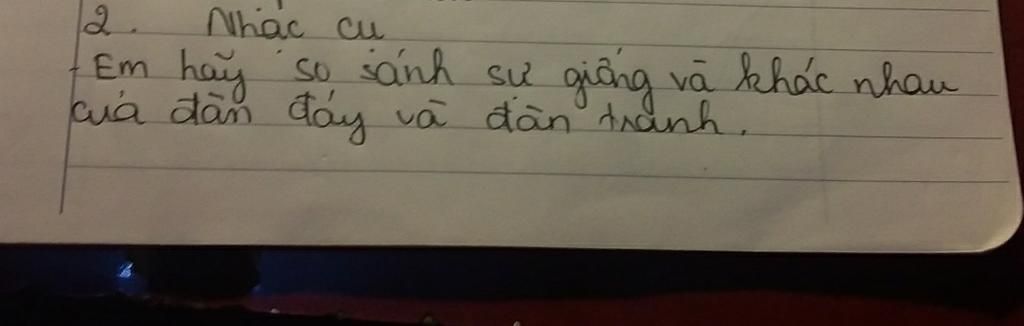 2. Nhạc cụ
+ Em hãy so sánh sự giống và khác nhau
của đàn đáy và đàn tranh.